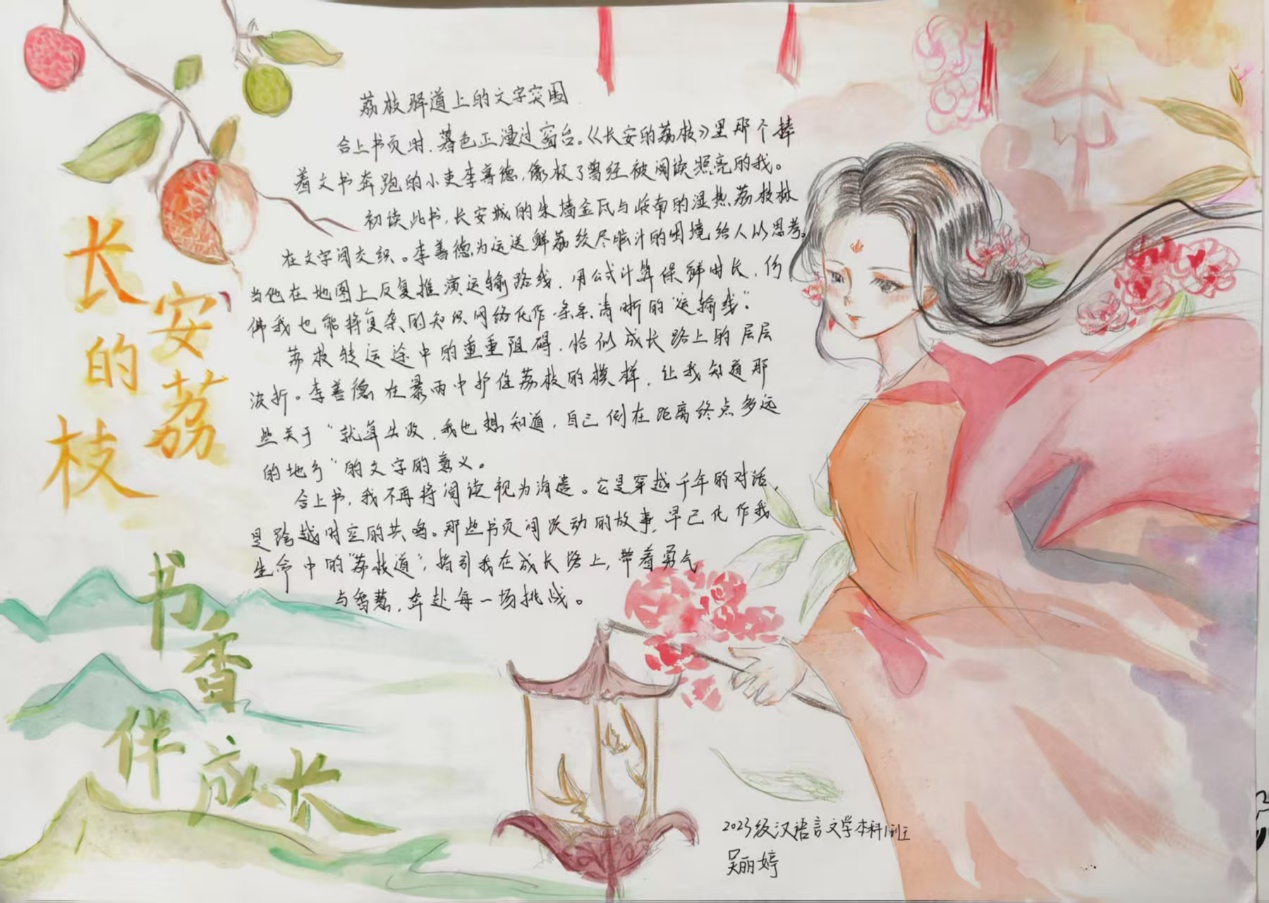 荔枝驿道上的文字突围
合上书页时，暮色正漫过窗台。《长安的荔枝》里那个捧
着文书奔跑的小吏李善德，像极了曾经被阅读照亮的我。
初读此书，长安城的朱墙金瓦与岭南的湿热荔枝林
在文字间交织。李善德为运送鲜荔绞尽脑汁的困境给人以思考。
当他在地图上反复推演运输路线，用公式计算保鲜时长，仿
佛我也能将复杂的知识网络化作一条条清晰的“运输线”。
荔枝转运途中的重重阻碍，恰似成长路上的层层
波折。李善德在暴雨中护住荔枝的模样，让我知道那
些关于“就算失败，我也想知道，自己倒在距离终点多远
的地方”的文字的意义。
合上书，我不再将阅读视为消遣。它是穿越千年的对话，
是跨越时空的共鸣。那些书页间跃动的故事，早已化作我
生命中的“荔枝道”，指引我在成长路上，带着勇气
与智慧，奔赴每一场挑战。
长安的荔枝
书香伴成长
2023级汉语言文学本科1班
吴丽婷